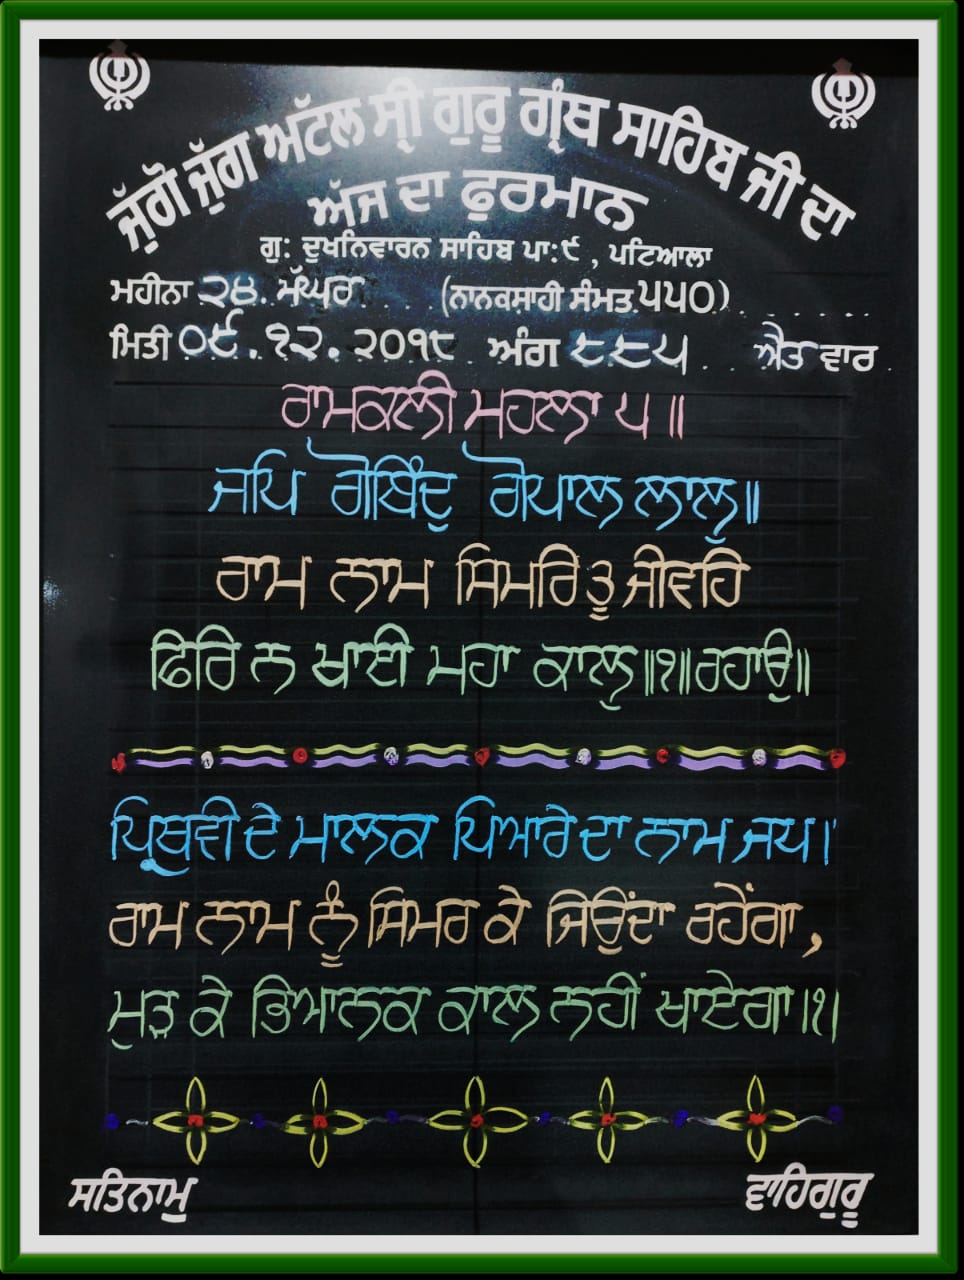 ਜੁੱਗੋ ਜੁੱਗ ਅੱਟਲ ਸ੍ਰੀ ਗੁਰੂ ਗ੍ਰੰਥ ਸਾਹਿਬ ਜੀ ਦਾ
ਅੱਜ ਦਾ ਫੁਰਮਾਨ
ਗੁ: ਦੁਖਨਿਵਾਰਨ ਸਾਹਿਬ ਪਾ:੯ , ਪਟਿਆਲਾ
ਮਹੀਨਾ ੨੪ ਮੱਘਰ (ਨਾਨਕਸਾਹੀ ਸੰਮਤ ੫੫੦)
ਮਿਤੀ ੦੯.੧੨.੨੦੧੮ ਅੰਗ ੮੮੫ ਐਤ ਵਾਰ
ਰਾਮਕਲੀ ਮਹਲਾ ੫ ॥
ਜਪਿ ਗੋਬਿੰਦੁ ਗੋਪਾਲ ਲਾਲੁ॥
ਰਾਮ ਨਾਮ ਸਿਮਰਿ ਤੂ ਜੀਵਹਿ
ਫਿਰਿ ਨ ਖਾਈ ਮਹਾ ਕਾਲੁ॥੧॥ਰਹਾਉ॥
ਪ੍ਰਿਥਵੀ ਦੇ ਮਾਲਕ ਪਿਆਰੇ ਦਾ ਨਾਮ ਜਪ।
ਰਾਮ ਨਾਮ ਨੂੰ ਸਿਮਰ ਕੇ ਜਿਉਂਦਾ ਰਹੇਂਗਾ,
ਮੁੜ ਕੇ ਭਿਆਨਕ ਕਾਲ ਨਹੀਂ ਖਾਏਗਾ।੧।
ਸਤਿਨਾਮੁ ਵਾਹਿਗੁਰੂ